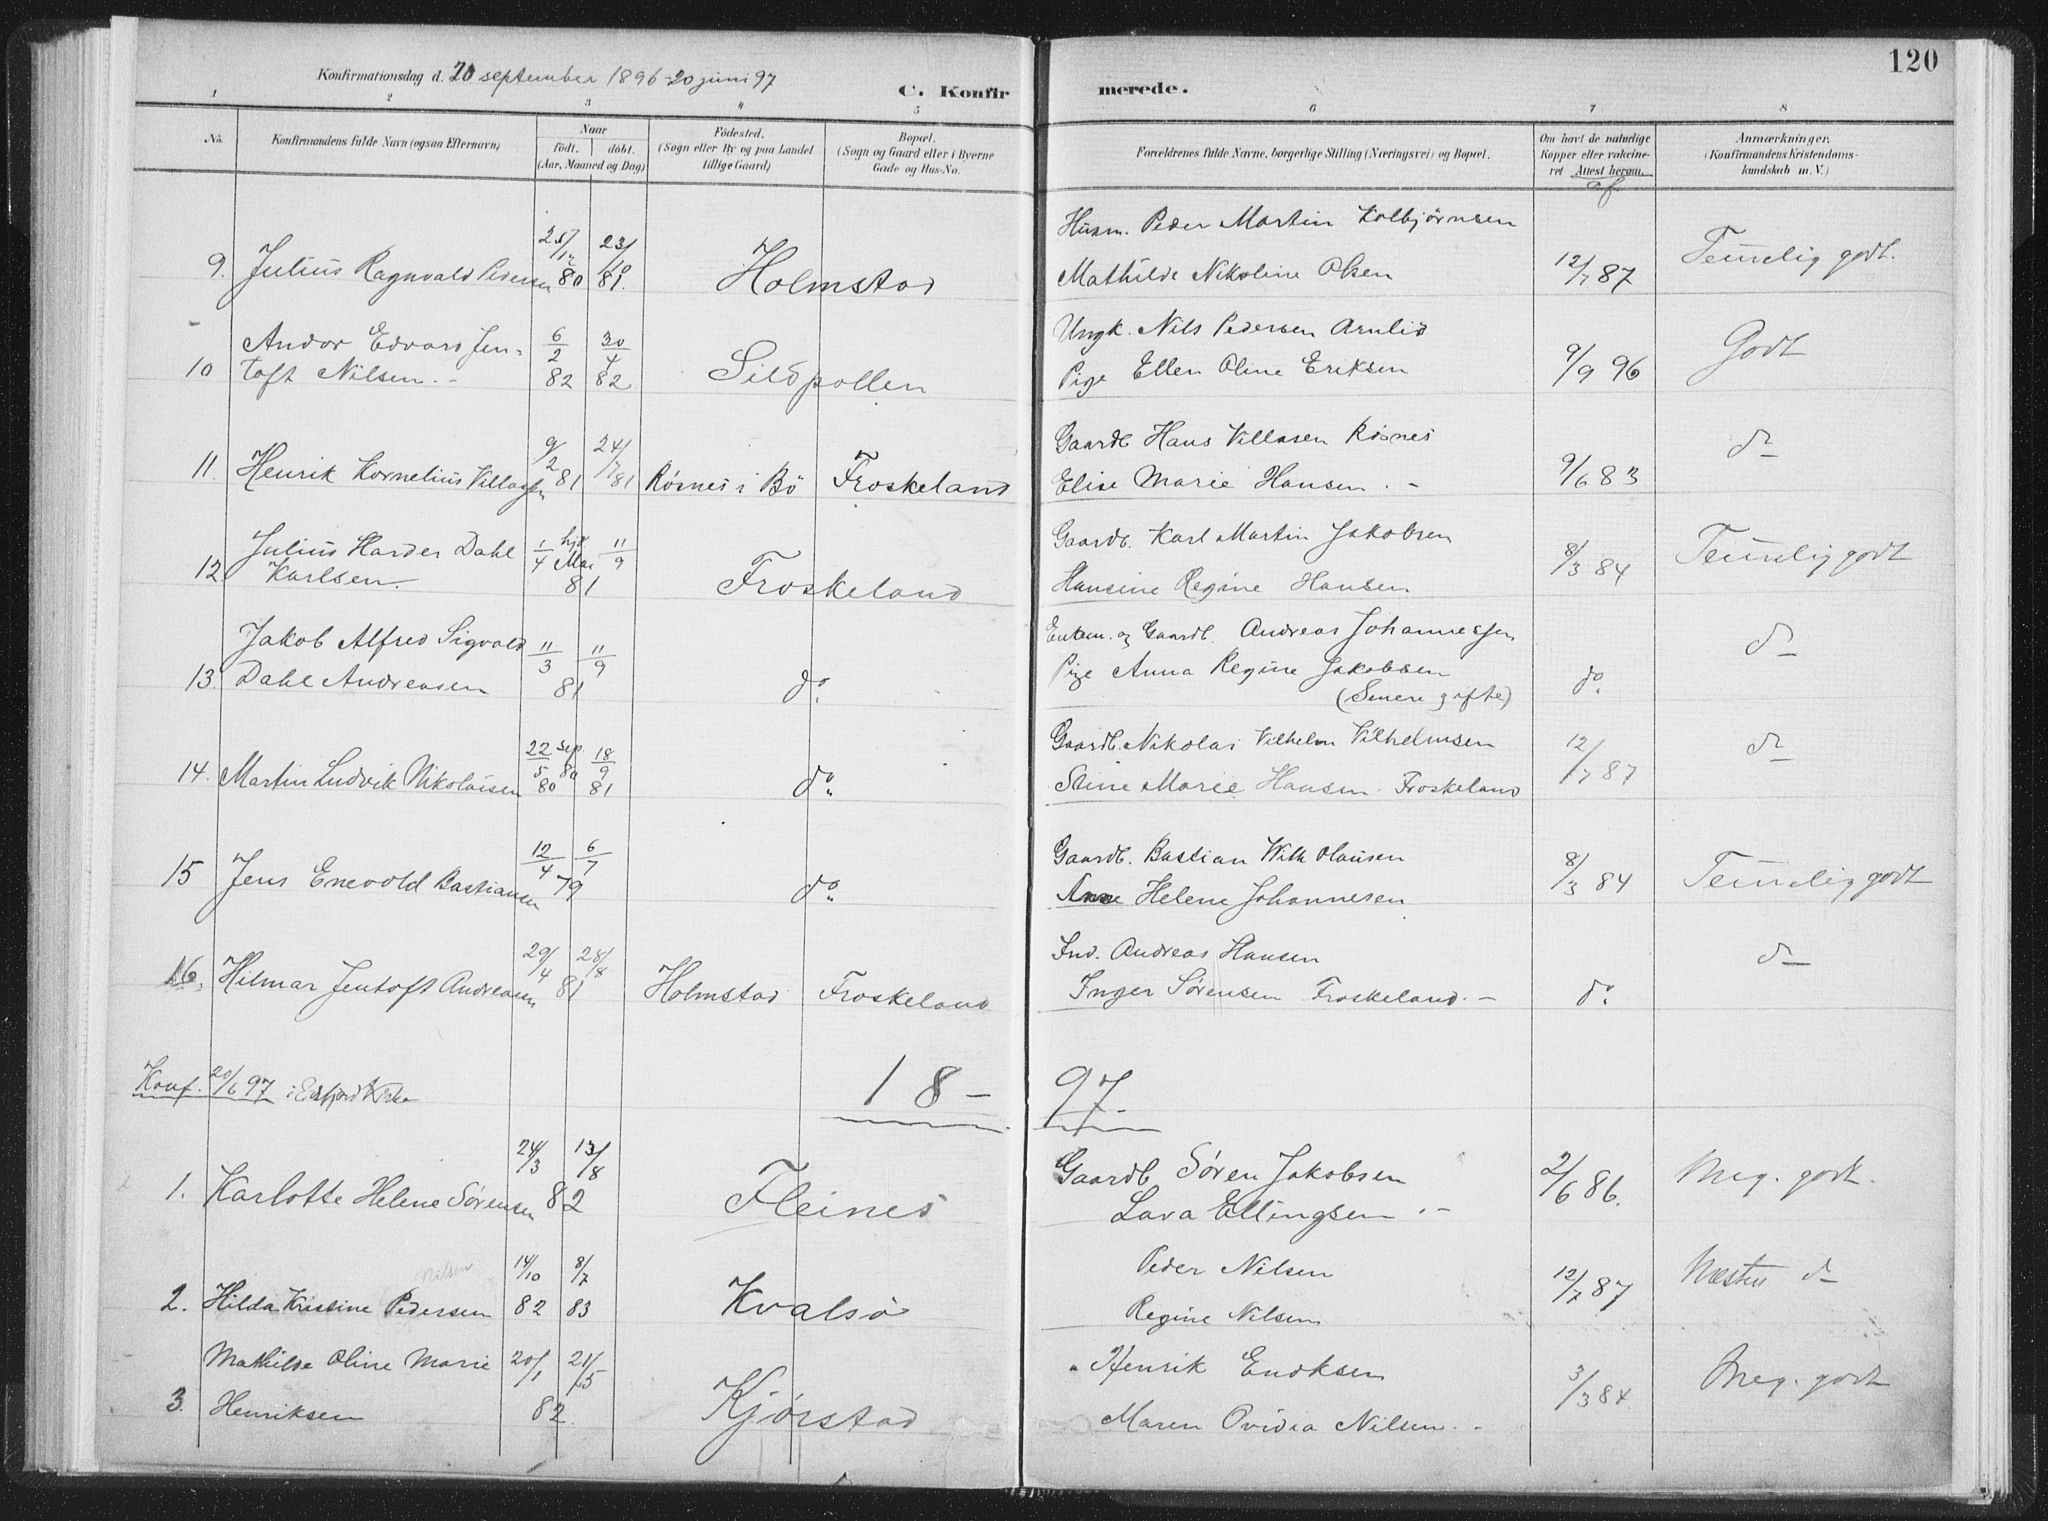 Konfirmationsdag d. 20 september 1896 - 20 juni 97
C. Konfirmerede.
120
1 2 3 4 5 6 7 8
No.
Konfirmandens fulde Navn (ogsaa Efternavn)
Naar
født. døbt.
(Aar, Maaned og Dag)
Fødested.
(Sogn eller By og paa Landet
tillige Gaard)
Bopæl.
(Sogn og Gaard eller i Byerne
Gade og Hus-No.
Forældrenes fulde Navne, borgerlige Stilling (Næringsvei) og Bopæl.
Om havt de naturlige
Kopper eller vakcine-
ret Attest herom.
af
Anmærkninger.
(Konfirmandens Kristendoms-
kundskab m. V.)
9. Julius Ragnvald Pedersen 25/12 80 23/10 81. Holmstad
Husm. Peder Martin Kolbjørnsen
Mathilde Nikoline Olsen 12/7 87 Temelig godt.
10 Andor Edvard Jen-
toft Nilsen. - 6/2 82 30/4 82 Sildpollen
Ungk. Nils Pedersen Arnlid
Pige Ellen Oline Eriksen 9/9 96 Godt
11. Henrik Kornelius Villassen 9/2 81 24/7 81 Røsnes i Bø Froskeland
Gaardb. Hans Villasen Røsnes
Elise Marie Hansen. - 9/6 83 do
12 Julius Harder Dahl
Karlsen. 1/4 hjd. Mai 11/9 81 Froskeland
Gaardb. Karl Martin Jakobsen
Hansine Regine Hansen 8/3 84 Temelig godt
13. Jakob Alfred Sigvald
Dahl Andreasen 11/3 11/9 81 do.
Enkem. og Gaardb. Andreas Johannessen
Pige Anna Regine Jakobsen
(Senere gifte) do. do
14. Martin Ludvik Nikolaisen 22/5 80 sep. 80 18/9 81 do.
Gaardb. Nikolai Vilhelm Vilhelmsen
Stine Marie Hansen Froskeland 12/7 87 do
15 Jens Enevold Bastiansen 12/4 6/7 79 do.
Gaardb. Bastian Wilh Olausen
Ane Helene Johannesen 8/3 84 Temelig godt
16. Hilmar Jentoft Andreasen 29/4 28/8 81 Holmstad Froskeland
Ind. Andreas Hansen
Inger Sørensen Froskeland. - do. do
Konf. 20/6 97 i Eidsfjord Kirke
18 - 97 -
1. Karlotte Helene Sørensen 24/3 13/8 82 Fleines
Gaardb Søren Jakobsen
Lava Ellingsen . - 2/6 86. Meg. godt.
Nilsen
2. Hilda Kristine Pedersen 14/10 82 8/7 83 Kvalsø
Peder Nilsen
Regine Nilsen 12/7 87 Næsten do
3. Mathilde Oline Marie
Henriksen 20/1 21/5 82. Kjørstad
" Henrik Enoksen
Maren Ovidia Nilsen. - 3/3 84 Meg. godt